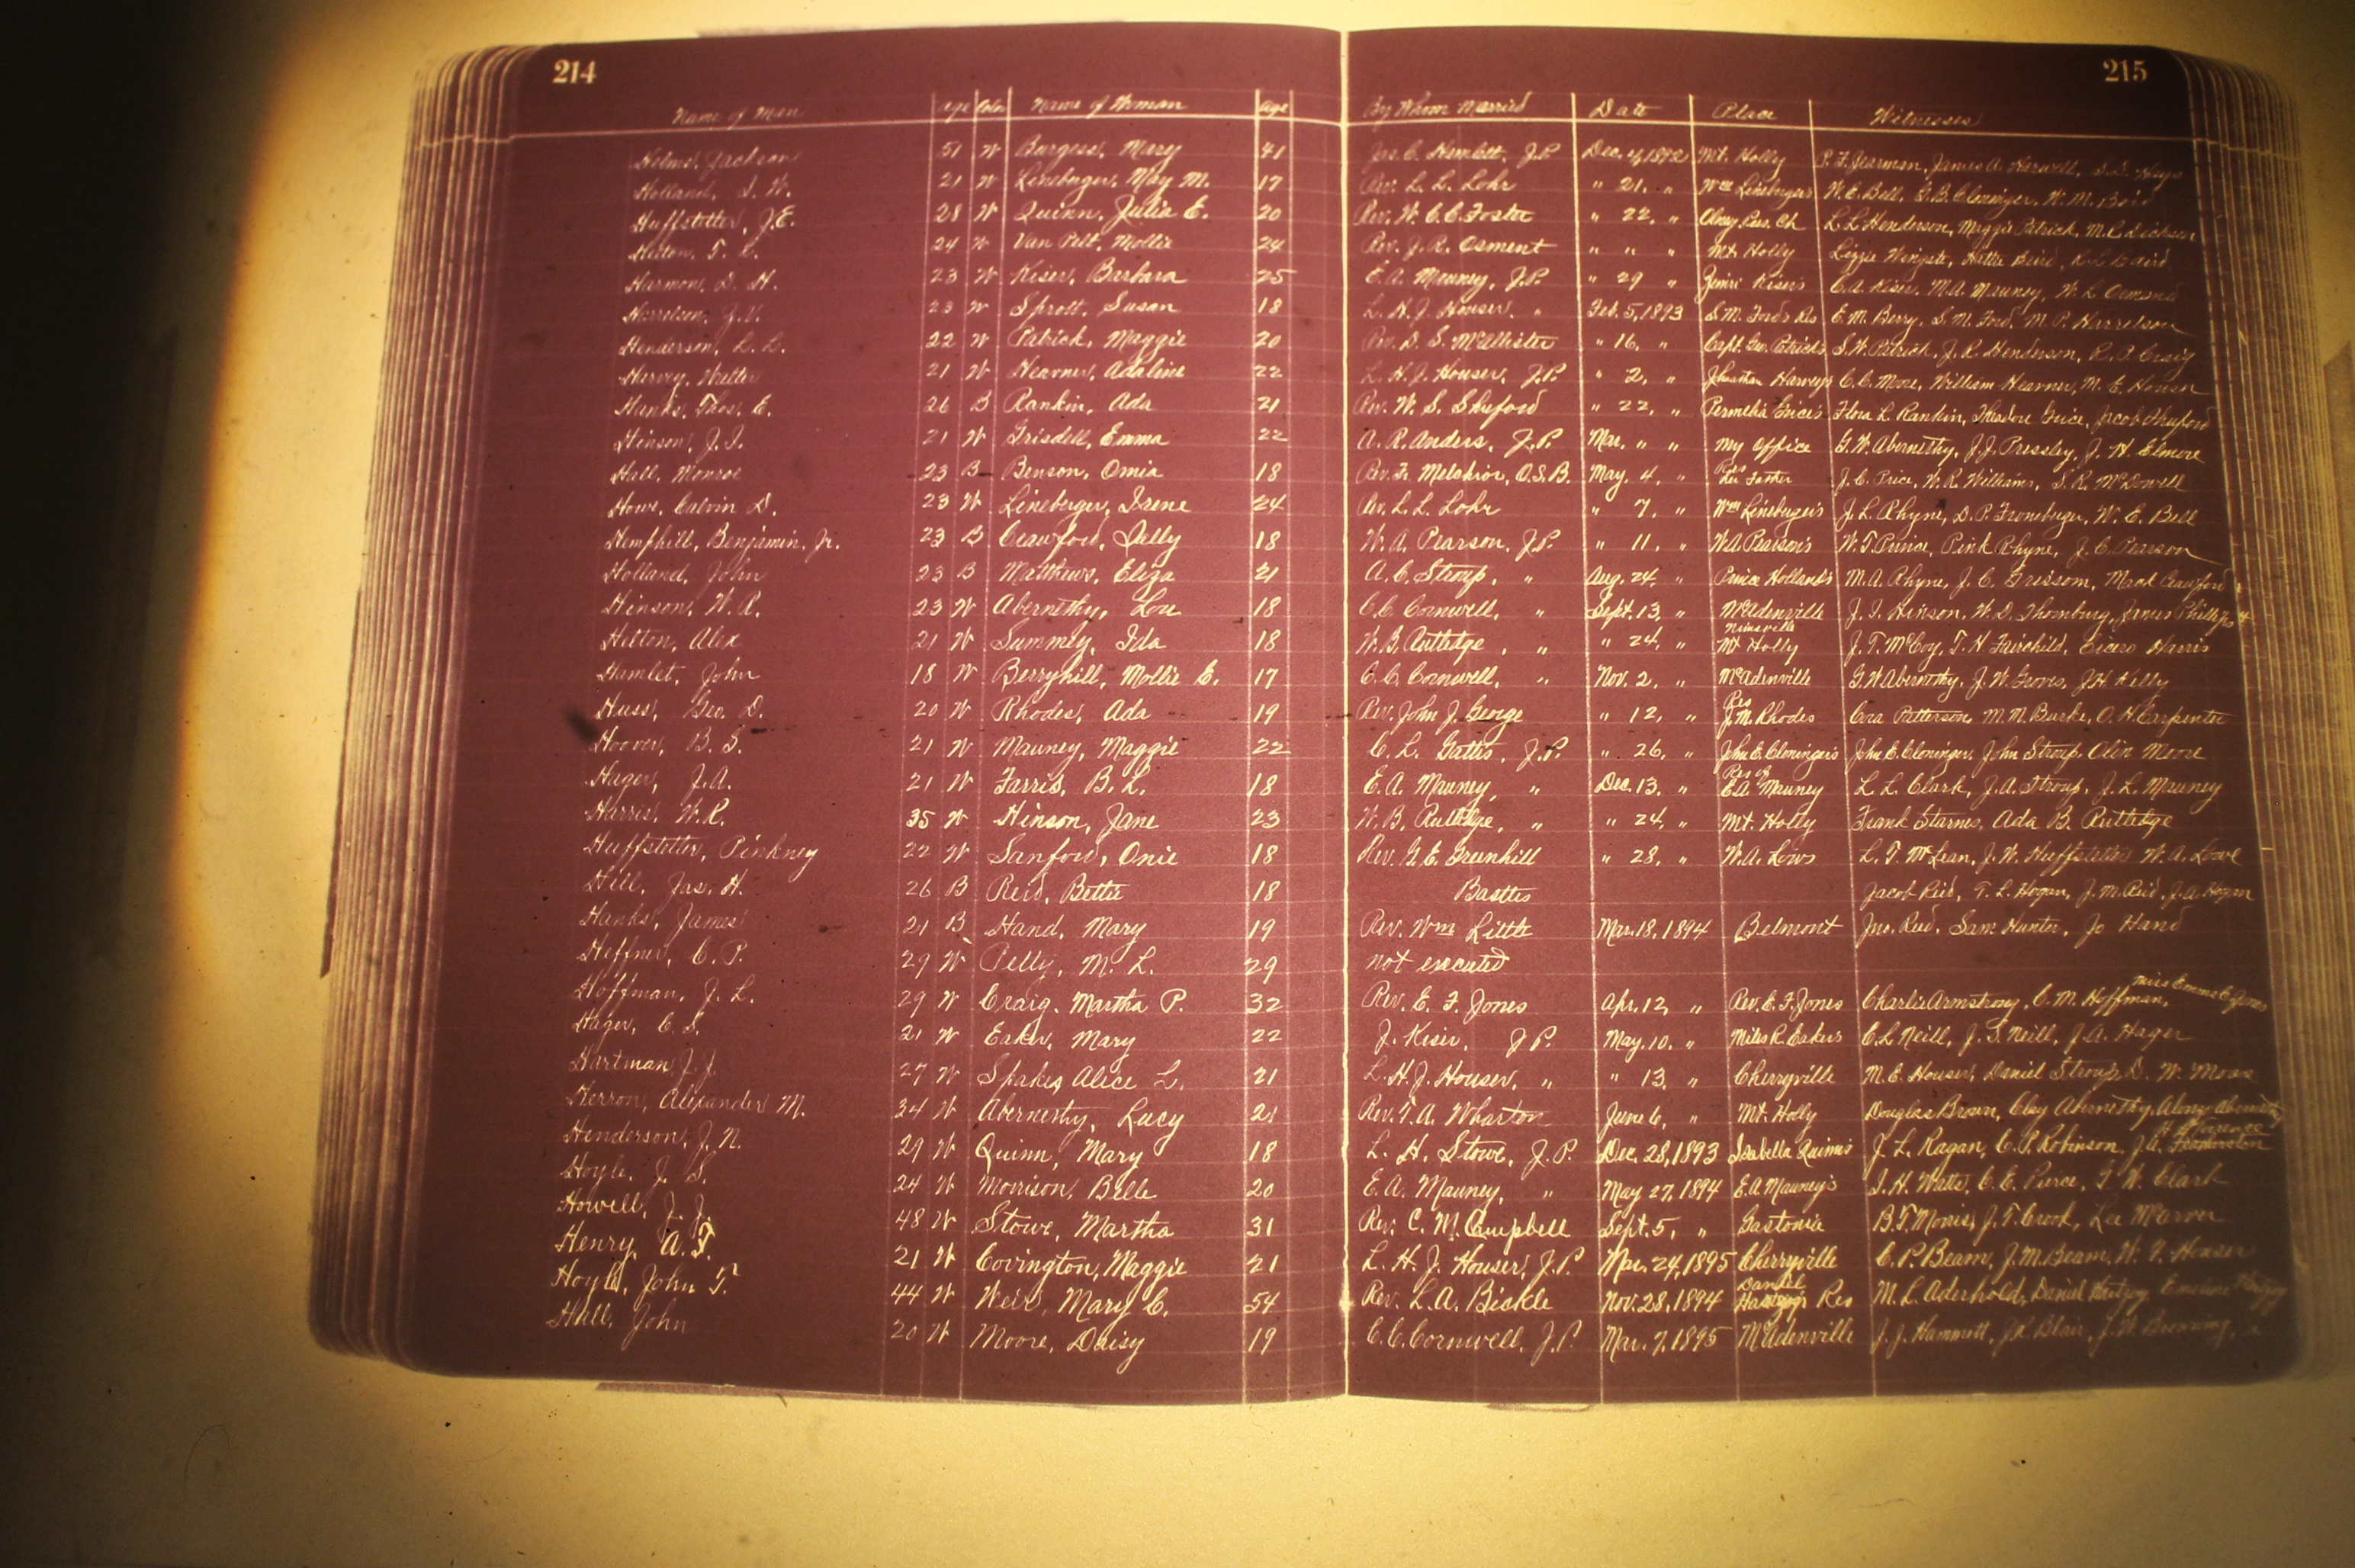 214 215
Name of Man Age Color Name of Woman Age By Whom Married Date Place Witnesses
Helms, Jackson 51 W Burgess, Mary 41 Jas. C. Hamlett, J.P. Dec. 4, 1892 Mt. Holly P. F. Jearman, James A. Harwell, Hays
Holland, J. W. 21 W Lineberger, May M. 17 Rev. L. L. Lohr " 21, " Wm Lineberger's W. E. Bell, G. B. Cloninger, W. M. Boid
Huffstetler, J. E. 28 W Quinn, Julia E. 20 Rev. W. C. C. Foster " 22, " Olney Pres. Ch L. L. Henderson, Maggie Patrick, M. R. Dickson
Hilton, T. L. 24 W Van Pelt, Mollie 24 Rev. J. R. Osment " " " Mt Holly Lizzie Wingate, Hattie Baird, Baird
Harmon, D. H. 23 W Kiser, Barbara 25 E. A. Mauney, J.P. " 29 " Zimri Kiser's C. A. Kiser, M. A. Mauney, W. L. Ormand
Harrelson, J. V. 23 W Sprott, Susan 18 L. H. J. Houser, " Feb. 5, 1893 S. M. Ford's Res E. M. Berry, S. M. Ford, M. P. Harrelson
Henderson, L. L. 22 W Patrick, Maggie 20 Rev. D. S. McAllister " 16, " Capt. Geo. Patrick's S. W. Patrick, J. R. Henderson, R. P. Craig
Harvey, Walter 21 W Heavner, Adaline 22 L. H. J. Houser, J.P. " 2, " Jonathan Harvey's C. C. Moore, William Heavner, M. E. Houser
Hanks, Thos. E. 26 B Rankin, Ada 21 Rev. W. S. Shuford " 22, " Permelia Grice's Flora L. Rankin, Theodore Grice, Jacob Shuford
Hinson, J. I. 21 W Grisdell, Emma 22 A. R. Anders, J.P. Mar. " " My Office G. W. Abernethy, J. J. Pressley, J. H. Elmore
Hall, Monroe 23 B Benson, Omia 18 Rev. Fr. Melchior, O.S.B. May. 4, " Res Her Father J. C. Price, W. R. Williams, S. R. McDowell
Howe, Calvin D. 23 W Lineberger, Irene 24 Rev. L. L. Lohr " 7, " Wm Lineberger's J. L. Rhyne, D. P. Froneberger, W. E. Bell
Hemphill, Benjamin, Jr. 23 B Crawford, Sally 18 W. A. Pearson, J.P. " 11, " W. A. Pearson's W. T. Prince, Pink Rhyne, J. C. Pearson
Holland, John 23 B Matthews, Eliza 21 A. C. Stroup, " Aug. 24, " Prince Holland's M. A. Rhyne, J. C. Grissom, Mack Crawford
Hinson, W. R. 23 W Abernethy, Lou 18 C. C. Cornwell, " Sept. 13, " McAdenville J. I. Hinson, W. D. Thornburg, James Phillips +
Hilton, Alex 21 W Summey, Ida 18 W. B. Rutledge, " " 24, " Nimsville Mt Holly J. T. McCoy, T. H. Fairchild, Cicero Harris
Hamlet, John 18 W Berryhill, Mollie E. 17 C. C. Cornwell, " Nov. 2, " McAdenville G. W. Abernethy, J. W. Groves, J. H. Kelly
Huss, Geo. D. 20 W Rhodes, Ada 19 Rev. John J. George " 12, " Res J. M. Rhodes Cora Patterson, M. M. Burke, O. H. Carpenter
Hoover, B. S. 21 W Mauney, Maggie 22 C. L. Gattis, J.P. " 26, " John E. Cloninger's John E. Cloninger, John Stroup, Olin Moore
Hager, J. A. 21 W Farris, B. L. 18 E. A. Mauney, " Dec. 13, " Res of E. A. Mauney L. L. Clark, J. A. Stroup, J. L. Mauney
Harris, W. R. 35 W Hinson, Jane 23 W. B. Rutledge, " " 24, " Mt. Holly Frank Starnes, Ada B. Rutledge
Huffstetler, Pinkney 22 W Sanford, Onie 18 Rev. G. E. Grunhill " 28, " W. A. Lows L. T. McLean, J. W. Huffstetler, W. A. Lowe
Hill, Jas. H. 26 B Reid, Bettie 18 Basttes Jacob Reid, T. L. Hogan, J. M. Reid, J. A. Hogan
Hanks, James 21 B Hand, Mary 19 Rev. Wm Little Mar. 18, 1894 Belmont Jno. Reid, Sam Hunter, Jo Hand
Heffner, C. P. 29 W Petty, M. L. 29 not executed
Hoffman, J. L. 29 W Craig, Martha P. 32 Rev. E. F. Jones Apr. 12, " Rev. E. F. Jones Charlie Armstrong, C. M. Hoffman, Miss Emma E Jones
Hager, C. S. 21 W Eaker, Mary 22 J. Kiser, J.P. May. 10, " Miles R. Eaker's C. L. Neill, J. S. Neill, J. A. Hager
Hartman J. J. 27 W Spakes, Alice L. 21 L. H. J. Houser, " " 13, " Cherryville M. E. Houser, Daniel Stroup, D. W. Moss
Herron, Alexander M. 34 W Abernethy, Lucy 21 Rev. T. A. Wharton June 6, " Mt. Holly Douglas Brown, Clay Abernethy, Alonzo Abernethy
Henderson, J. N. 29 W Quinn, Mary 18 L. H. Stowe, J.P. Dec. 28, 1893 Isabella Quinn's J. L. Ragan, C. P. Robinson, J. A.
Hoyle, J. S. 24 W Morrison, Belle 20 E. A. Mauney, " May 27, 1894 E. A. Mauney's J. H. Watts, C. E. Pierce, T. W. Clark
Howell, J. J. 48 W Stowe, Martha 31 Rev. C. M. Campbell Sept. 5, " Gastonia B. T. Morris, J. T. Crook, Lee McArver
Henry, A. F. 21 W Covington, Maggie 21 L. H. J. Houser, J.P. Mar. 24, 1895 Cherryville C. P. Beam, J. M. Beam, W. T. Houser
Hoyle, John T. 44 W Weir, Mary C. 54 Rev. L. A. Bickle Nov. 28, 1894 Daniel Res M. L. Aderhold, Daniel
Hall, John 20 W Moore, Daisy 19 C. C. Cornwell, J.P. Mar. 7, 1895 McAdenville J. J. Hammett, J. R. Blair,